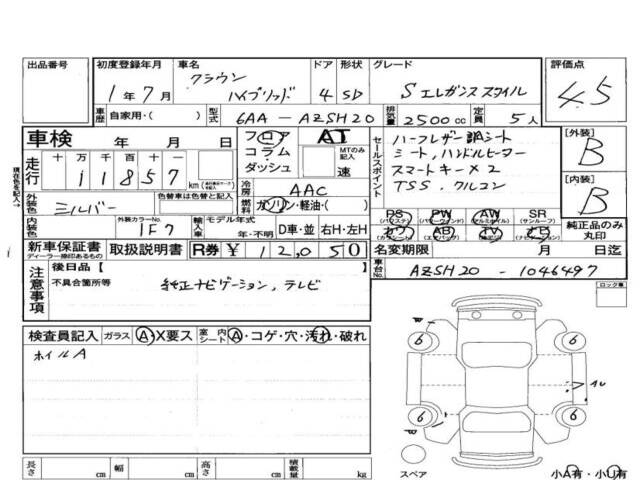 出品番号
初度登録年月
1年7月
車名
クラウン
ハイブリッド
ドア
4
形状
SD
グレード
Sエレガンススタイル
評価点
4.5
車歴
自家用・( )
型式
6AA - AZSH20
排気量
2500cc
定員
5人
車検 年 月 日
フロア
コラム・
ダッシュ
AT
MTのみ記入
速
セールスポイント
ハーフレザー調シート
シート、ハンドルヒーター
スマートキー×2
TSS. クルコン
[外装]
B
[内装]
B
走行
十 万 千 百 十
11857
km
冷房
AAC
燃料
ガソリン・軽油・( )
現在色を記入→
外装色
シルバー
色替車は色替と記入
内装色
外装カラーNo.
1F7
輸入車
モデル年式
年・不明
D車・並
右H・左H
PS
(パワステ)
PW
(パワーウィンド)
AW
(アルミホイル)
SR
(サンルーフ)
カワ
(カワシート)
AB
(エアバッグ)
TV
ナビ
(ナビゲーション)
純正品のみ
丸印
新車保証書
ディーラー捺印あるもの
取扱説明書
R券 ¥ 12,050
名変期限 月 日迄
注意事項
後日品【 】
不具合箇所等
純正ナビゲーション, テレビ
車台No.
AZSH20 - 1046497
ロック車
検査員記入
ガラス
A・X要ス
室内シート
A・コゲ・穴・汚れ・破れ
ホイルA
6
6
6
6
スペア
小A有・小U有
長さ cm
幅 cm
高さ cm
積載量 kg